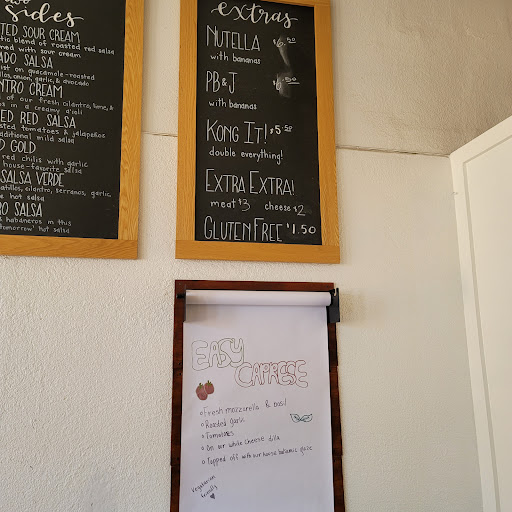 sides
TED SOUR CREAM
tic blend of roasted red salsa
ned with sour cream
ADO SALSA
ist on guacamole-roasted
llos, onion, garlic, & avocado
NTRO CREAM
of our fresh cilantro, lime, &
s in a creamy aioli
ED RED SALSA
sted tomatoes & jalapeños
aditional mild salsa
D GOLD
red chilis with garlic
house-favorite salsa
SALSA VERDE
atillos, cilantro, serranos, garlic,
e hot salsa
RO SALSA
& habaneros in this
tomorrow" hot salsa
extras
NUTELLA $6.50
with bananas
PB&J $6.50
with bananas
KONG IT! $5.50
double everything!
EXTRA EXTRA!
meat $3 cheese $2
GLUTEN FREE $1.50
EASY
CAPRESE
Fresh mozzarella & basil
Roasted garlic
Tomatoes
On our white cheese dilla
Topped off with our house balsamic glaze
Vegetarian
friendly